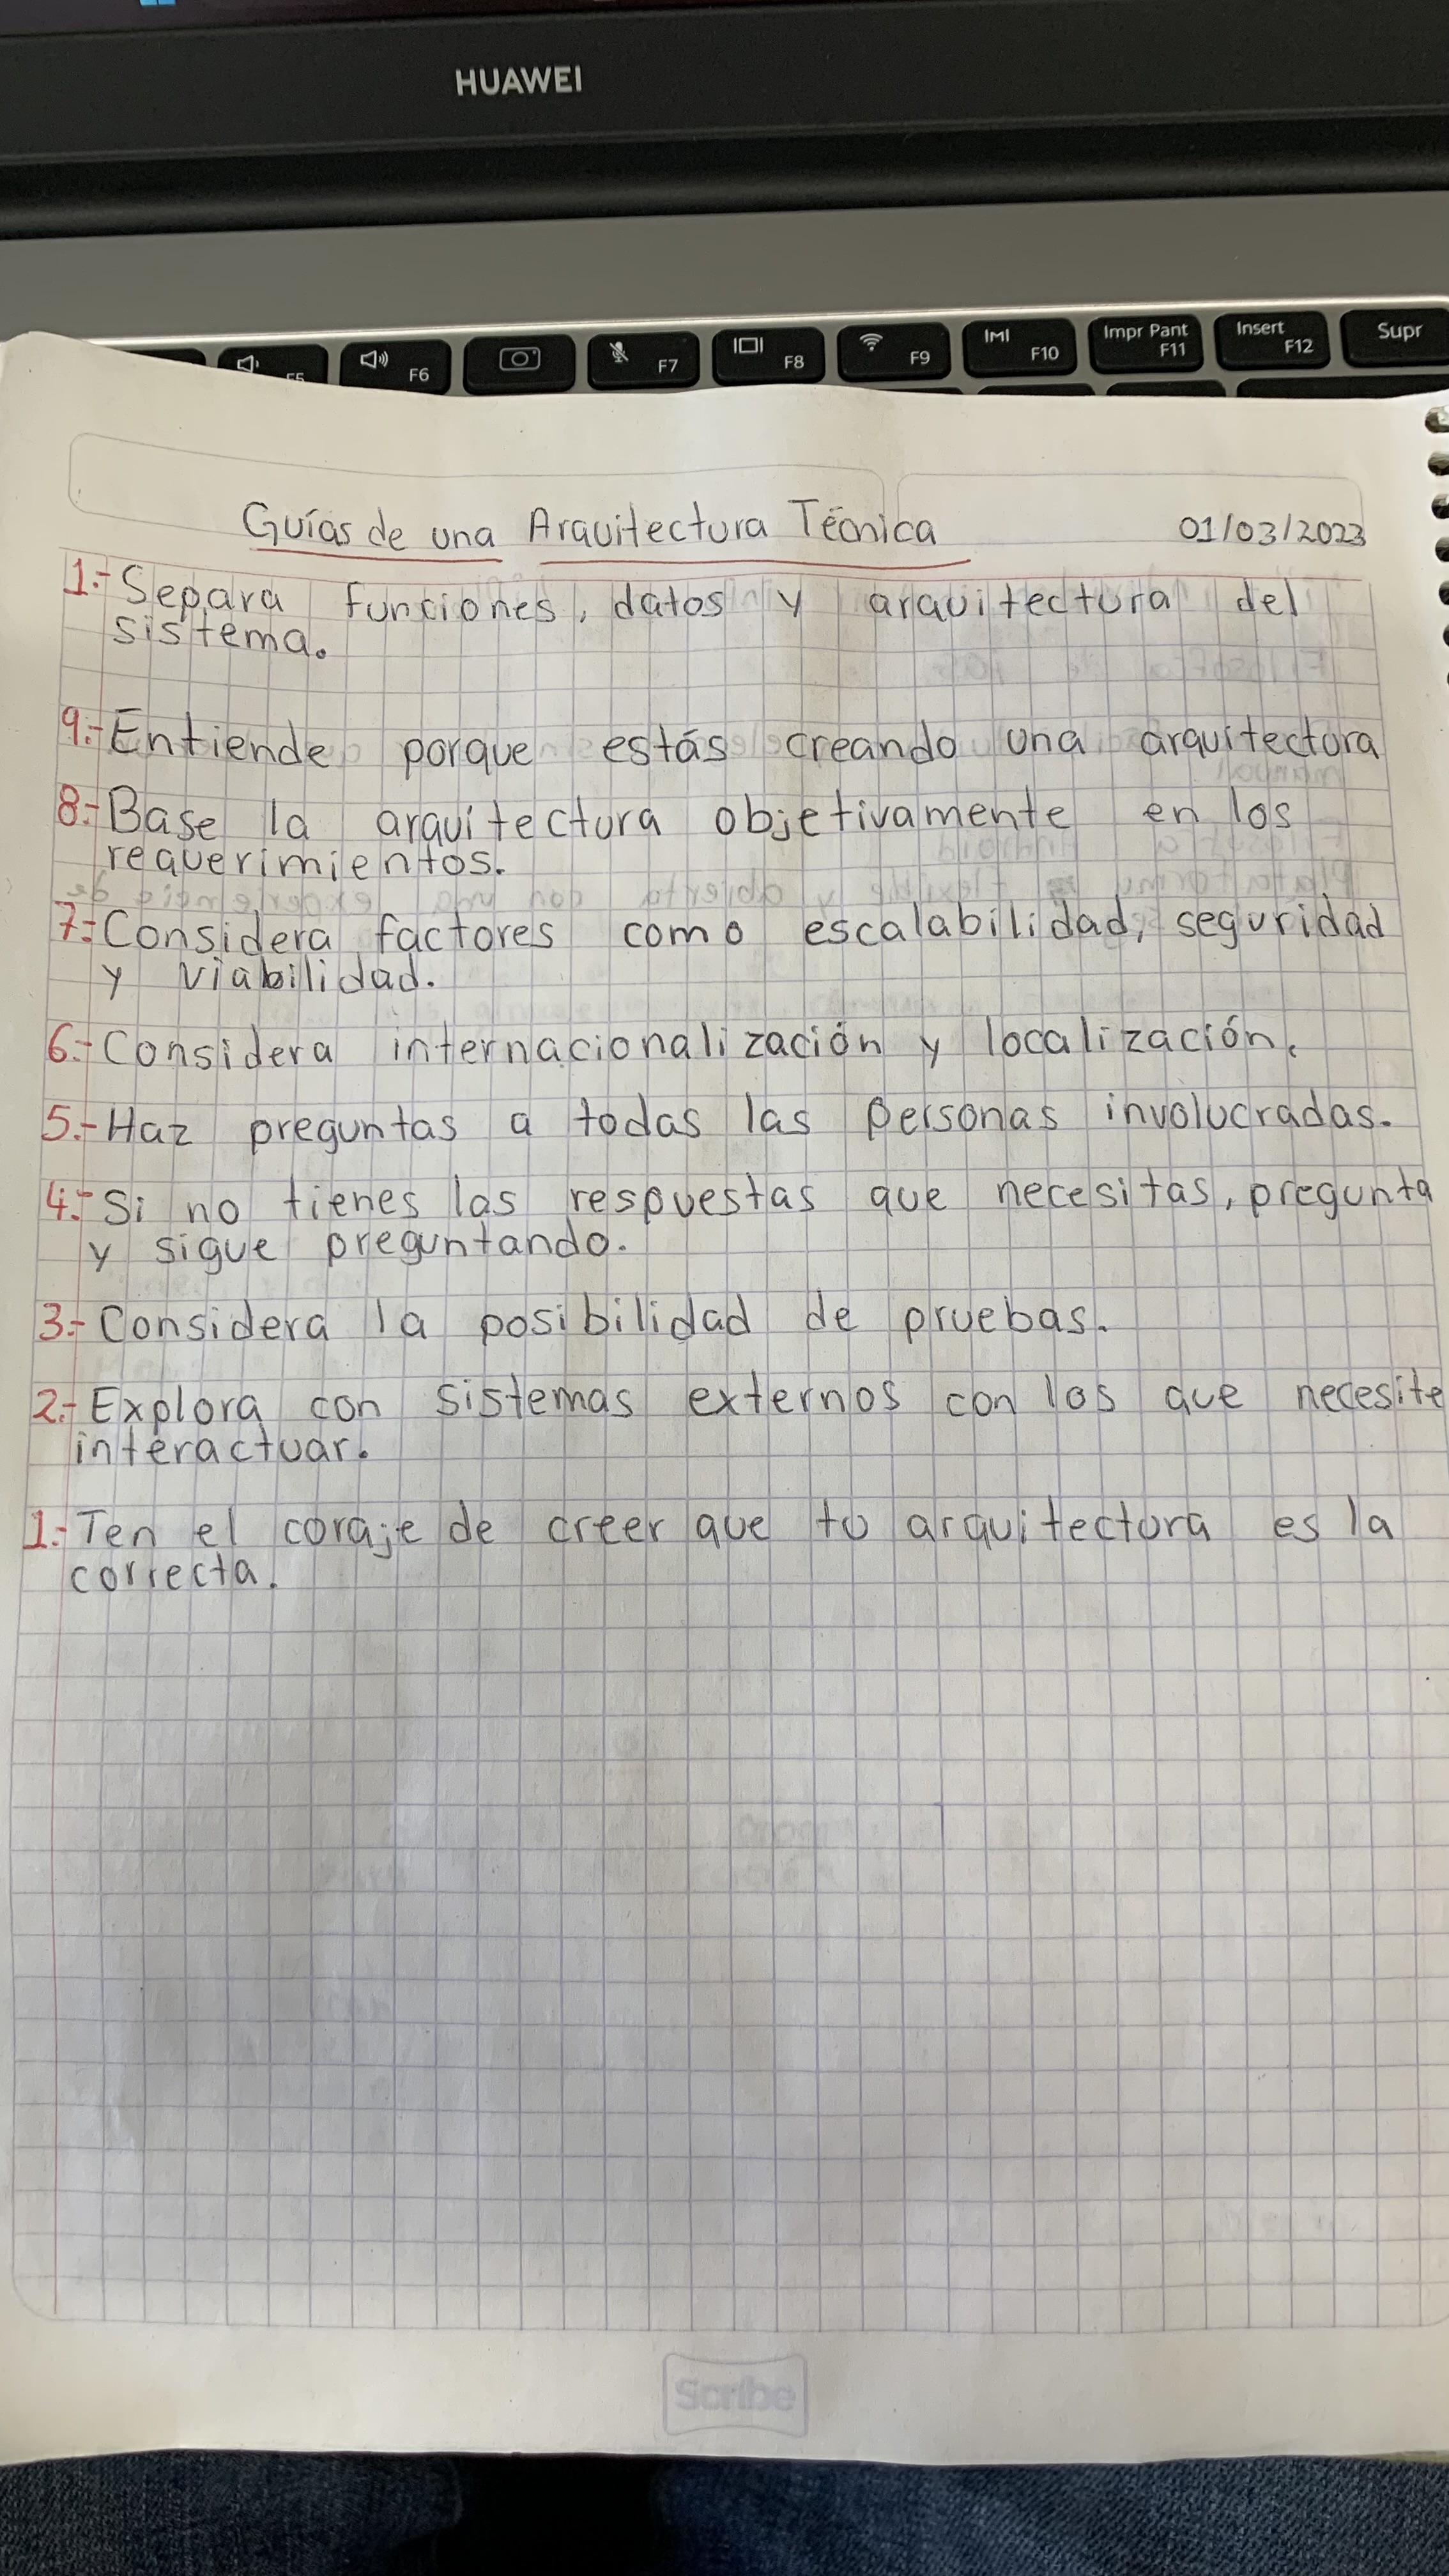 HUAWEI
F5
F6
F7
F8
F9
F10
Impr Pant
F11
Insert
F12
Supr
Guías de una Arquitectura Técnica
01/03/2023
1.- Separa funciones, datos y arquitectura del
sistema.
9.- Entiende porque estás creando una arquitectura
8.- Base la arquitectura objetivamente en los
requerimientos.
7.- Considera factores como escalabilidad, seguridad
y viabilidad.
6.- Considera internacionalización y localización.
5.- Haz preguntas a todas las personas involucradas.
4.- Si no tienes las respuestas que necesitas, pregunta
y sigue preguntando.
3.- Considera la posibilidad de pruebas.
2.- Explora con sistemas externos con los que necesite
interactuar.
1.- Ten el coraje de creer que tu arquitectura es la
correcta.
Scribe